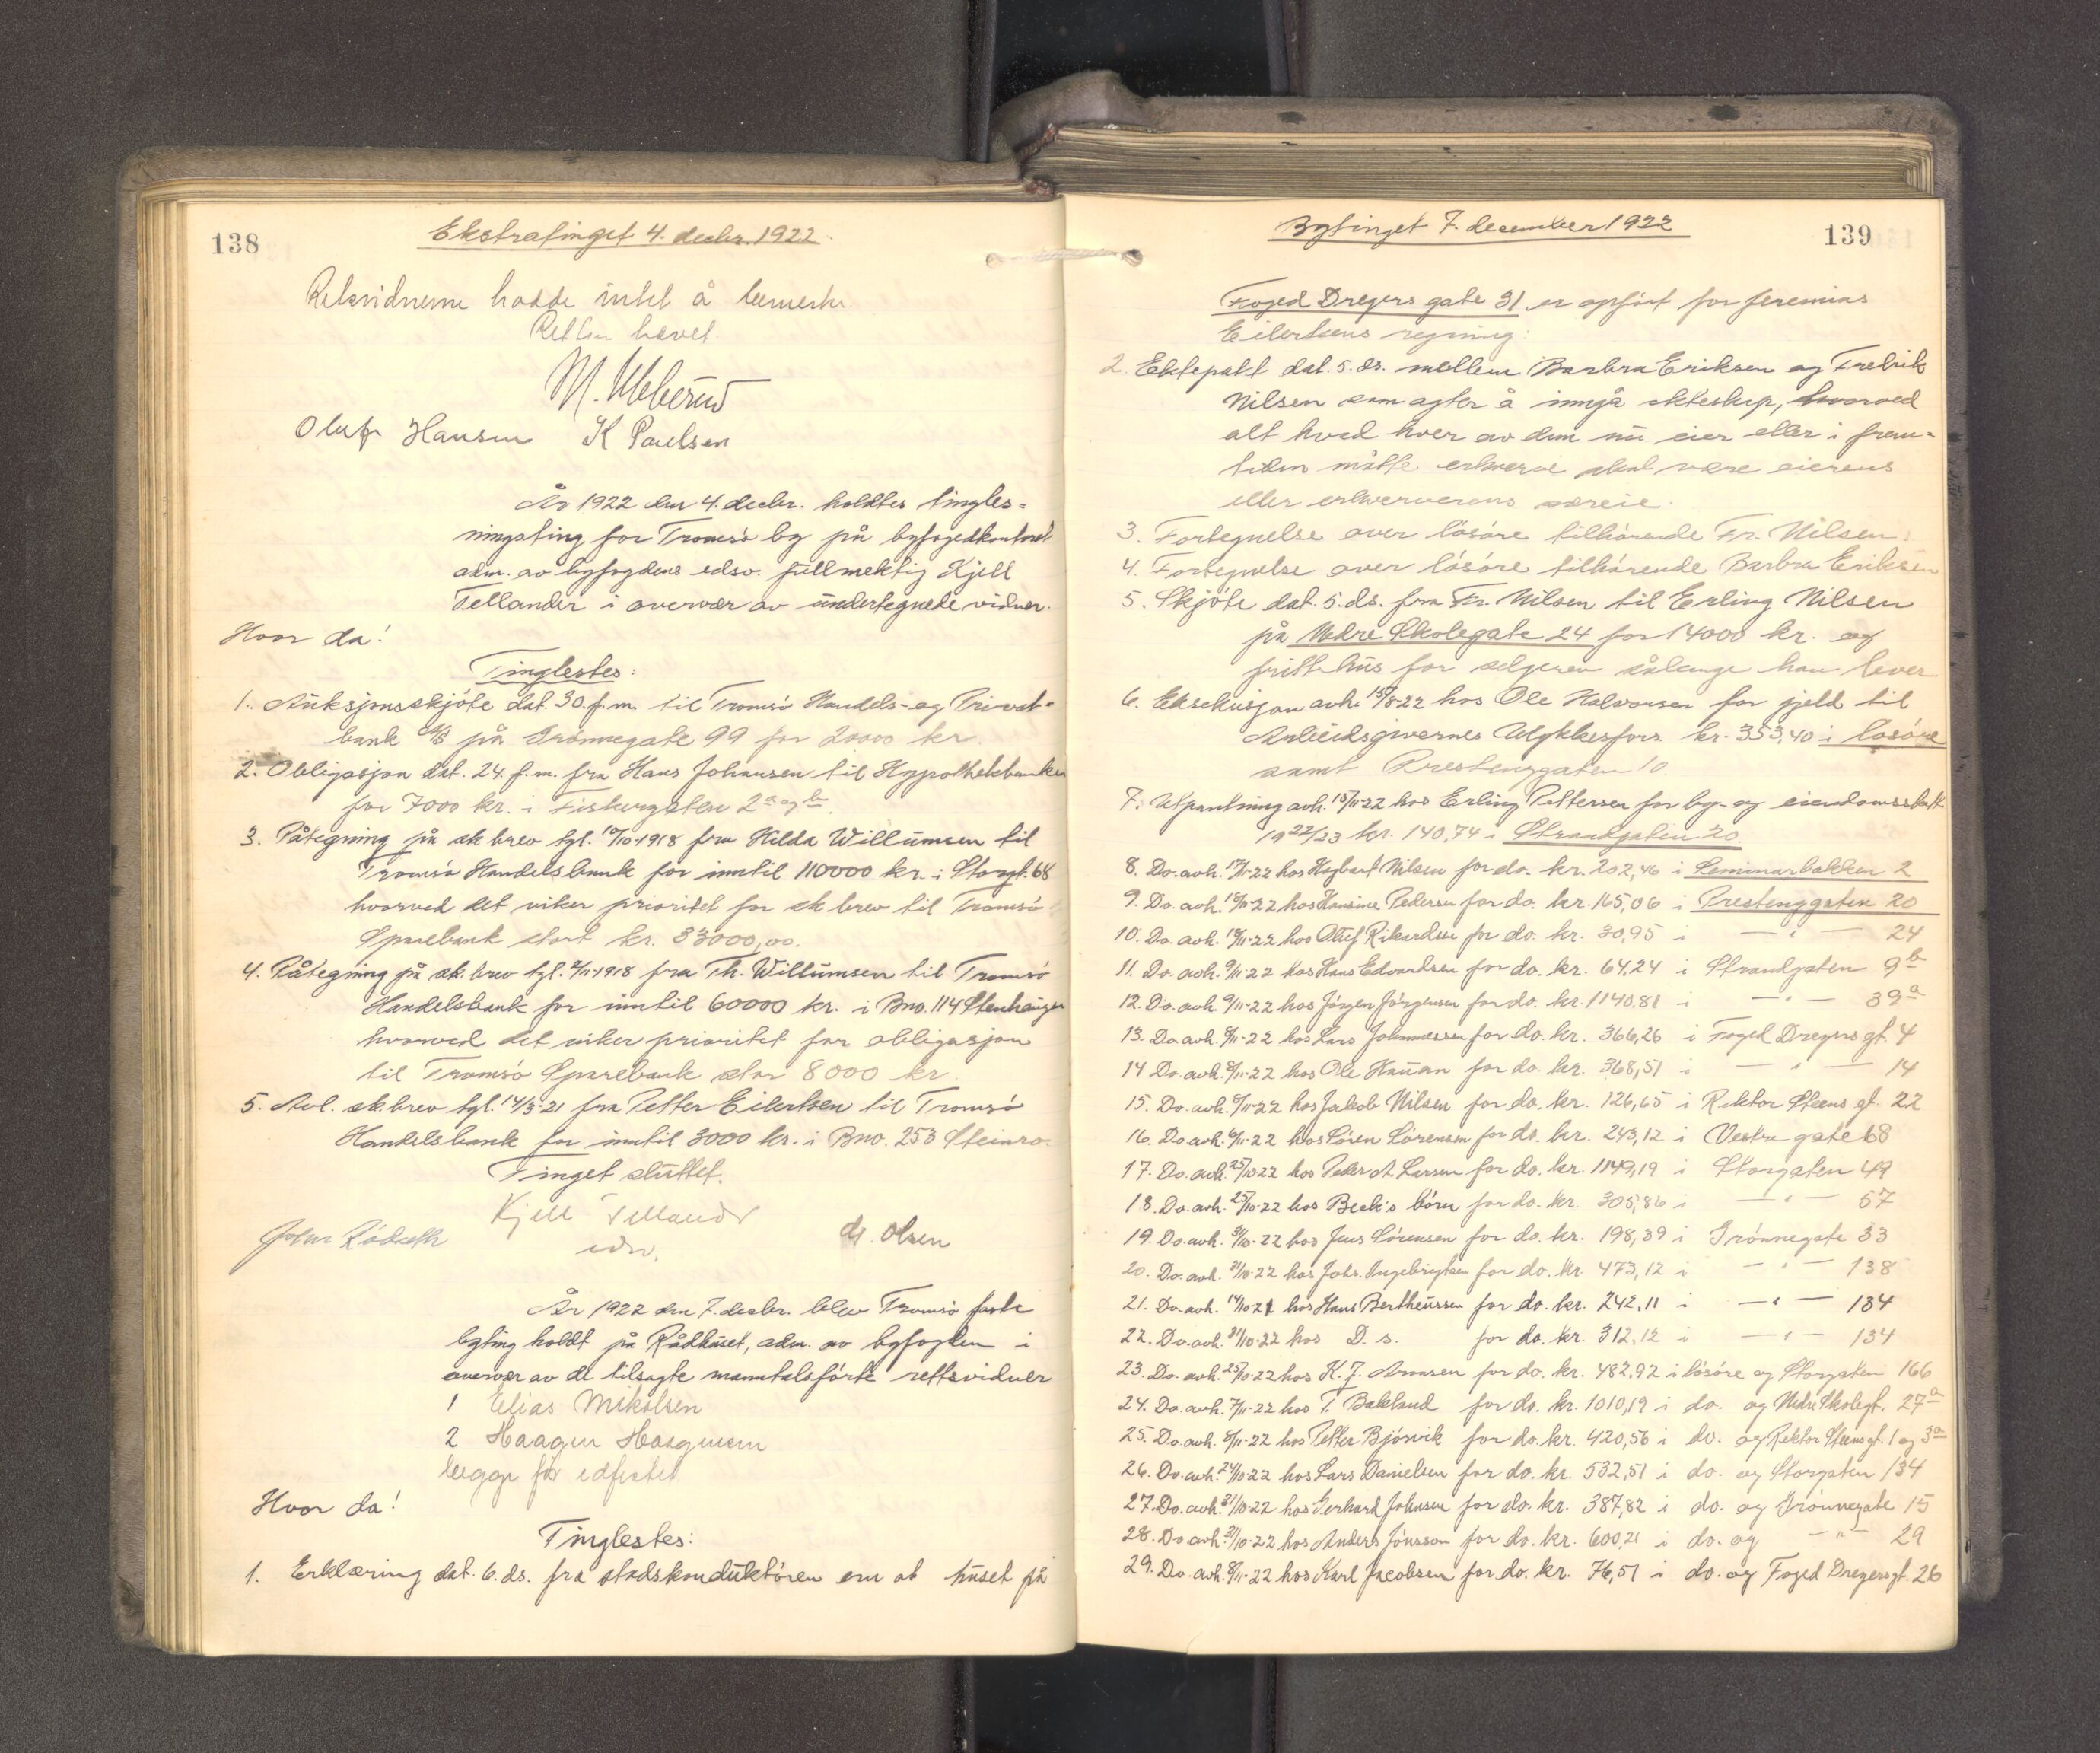 138
Ekstratinget 4. decbr. 1922.
Retsvidnerne hadde intet å bemerke.
Retten hævet.
Oluf Hansen K Paulsen
År 1922 den 4. decbr. holdtes tingles-
ningsting for Tromsö by på byfogedkontoret
adm. av byfogdens edsv. fullmektig Kjell
Tellander i overvær av undertegnede vidner.
Hvor da!
Tinglestes:
1. Auksjonsskjöte dat. 30. f.m. til Tromsö Handels- og Privat-
bank A/S på Grönnegate 99 for 20000 kr.
2. Obligasjon dat. 24. f.m. fra Hans Johansen til Hypothekbanken
for 7000 kr. i Fiskergaten 2a og b.
3. Påtegning på sk.brev tgl. 10/10-1918 fra Hilda Willumsen til
Tromsö Handelsbank for inntil 110000 kr. i Storgt. 68
hvorved det viker prioritet for sk.brev til Tromsö
Sparebank stort kr. 33000,00.
4. Påtegning på sk.brev tgl. 2/11-1918 fra Th. Willumsen til Tromsö
Handelsbank for inntil 60000 kr. i Bno. 114 Stenhaugen
hvorved det viker prioritet for obligasjon
til Tromsö Sparebank stor 8000 kr.
5. Avl. sk.brev tgl. 14/3-21 fra Petter Eilertsen til Tromsö
Handelsbank for inntil 3000 kr. i Bno. 253 Steinro.
Tinget sluttet.
Kjell Tellander
edsv.
Olsen
År 1922 den 7. decbr. blev Tromsö faste
byting holdt på Rådhuset, adm. av byfogden i
overvær av de tilsagte manntalsförte rettsvidner
1 Elias Mikalsen
2 Haagen Haagensen
begge för edfestet.
Hvor da!
Tinglestes:
1. Erklæring dat. 6. ds. fra stadskonduktören om at huset på
Bytinget 7. december 1922
139
Foged Dreyers gate 31 er opfört for Jeremias
Eilertsens regning.
2. Ektepakt dat. 5. ds. mellem Barbra Eriksen og Fredrik
Nilsen som agter å inngå ekteskap, hvorved
alt hvad hver av dem nu eier eller i frem-
tiden måtte erhverve skal være eierens
eller erhververens særeie.
3. Fortegnelse over lösöre tilhörende Fr. Nilsen.
4. Fortegnelse over lösöre tilhörende Barbra Eriksen
5. Skjöte dat. 5. ds. fra Fr. Nilsen til Erling Nilsen
på Nedre Skolegate 24 for 14000 kr. og
fritt hus for selgeren sålenge han lever
6. Eksekusjon avh. 15/8-22 hos Ole Halvorsen for gjeld til
Arbeidsgivernes Ulykkesfors. kr. 353,40 i lösöre
samt Prestenggaten 10
7. Utpantning avh. 15/11-22 hos Erling Pettersen for by- og eiendomsskatt
1922/23 kr. 140,74 i Strandgaten 20.
8. Do. avh. 17/11-22 hos Hagbart Nilsen for do. kr. 202,46 i Seminarbakken 2
9. Do. avh. 18/11-22 hos Hansine Pedersen for do. kr. 165,06 i Prestenggaten 20
10. Do. avh. 18/11-22 hos Oluf Rikardsen for do. kr. 30,95 i —"— 24
11. Do. avh. 9/11-22 hos Hans Edvardsen for do. kr. 64,24 i Strandgaten 9b
12. Do. avh. 9/11-22 hos Jörgen Jörgensen for do. kr. 1140.81 i —"— 39a
13. Do. avh. 8/11-22 hos Lars Johannessen for do. kr. 366,26 i Foged Dreyers gt. 4
14 Do. avh. 8/11-22 hos Ole Hauan for do. kr. 368,51 i —"— 14
15. Do. avh. 8/11-22 hos Jakob Nilsen for do. kr. 126,65 i Rektor Steens gt. 22
16. Do. avh. 6/11-22 hos Sören Sörensen for do. kr. 243,12 i Vestre gate 68
17. Do. avh. 25/10-22 hos Peder A. Larsen for do. kr. 1149,19 i Storgaten 49
18. Do. avh. 25/10-22 hos Beck's börn for do. kr. 305,86 i —"— 57
19. Do. avh. 31/10-22 hos Jens Sörensen for do. kr. 198,39 i Grönnegate 33
20. Do. avh. 31/10-22 hos Johs. Ingebrigtsen for do. kr. 473,12 i —"— 138
21. Do. avh. 14/10-21 hos Hans Bertheussen for do. kr. 242,11 i —"— 134
22. Do. avh. 31/10-22 hos D. s. for do. kr. 312,12 i —"— 134
23. Do. avh. 25/10-22 hos K. J. Aronsen for do. kr. 482,92 i lösöre og Storgaten 166
24. Do. avh. 7/11-22 hos T. Bakland for do. kr. 1010,19 i do. og Nedre Skolegt. 27a
25. Do. avh. 8/11-22 hos Petter Bjørvik for do. kr. 420,56 i do. og Rektor Steensgt. 1 og 3a
26. Do. avh. 24/10-22 hos Lars Danielsen for do. kr. 532,51 i do. og Storgaten 134
27. Do. avh. 31/10-22 hos Gerhard Johnsen for do. kr. 387,82 i do. og Grönnegate 15
28. Do avh. 31/10-22 hos Anders Jönsson for do. kr. 600,21 i do. og —"— 29
29. Do. avh. 8/11-22 hos Karl Jacobsen for do. kr. 76,51 i do. og Foged Dreyersgt. 26